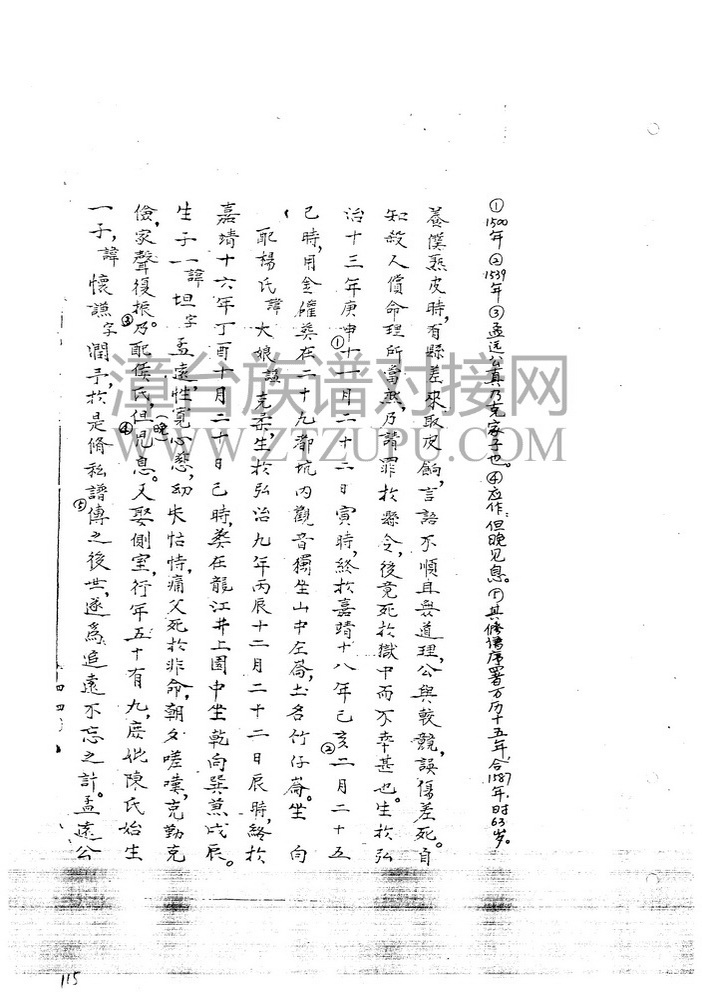 ①1500年②1539年③孟远公真乃克家子也。④应作:但晚见息。⑤其修谱序署万历十五年,合1587年.时63岁。
養僕熟皮時,有縣差來取皮餉,言語不順且無道理,公與較競,誤傷差死。自
知殺人償命理所當然,乃請罪於縣令,後竟死於獄中而不幸甚也。生於弘
治十三年庚申十一月二十二日寅時,終於嘉靖十八年己亥二月二十五
①②
巳時,用金確葬在二十九都坑內觀音獨坐山中左崙,土名竹仔崙。坐 向
配楊氏諱大娘諡克柔,生於弘治九年丙辰十二月二十二日辰時,終於
嘉靖十六年丁酉十月二十日巳時,葬在龍江井上園中坐乾向巽兼戌辰。
生子一諱坦字孟遠,性寬心慈,幼失怙恃,痛父死於非命,朝夕嗟嘆,克勤克
儉,家聲復振。乃配侯氏,但見息。又娶側室,行年五十有九,庶妣陳氏始生
③④(晚)
一子,諱懷謙字潤予,於是脩私譜傳之後世,遂為追遠不忘之計。孟遠公
⑤
漳台族谱对接网
WWW.ZTZUPU.COM
115